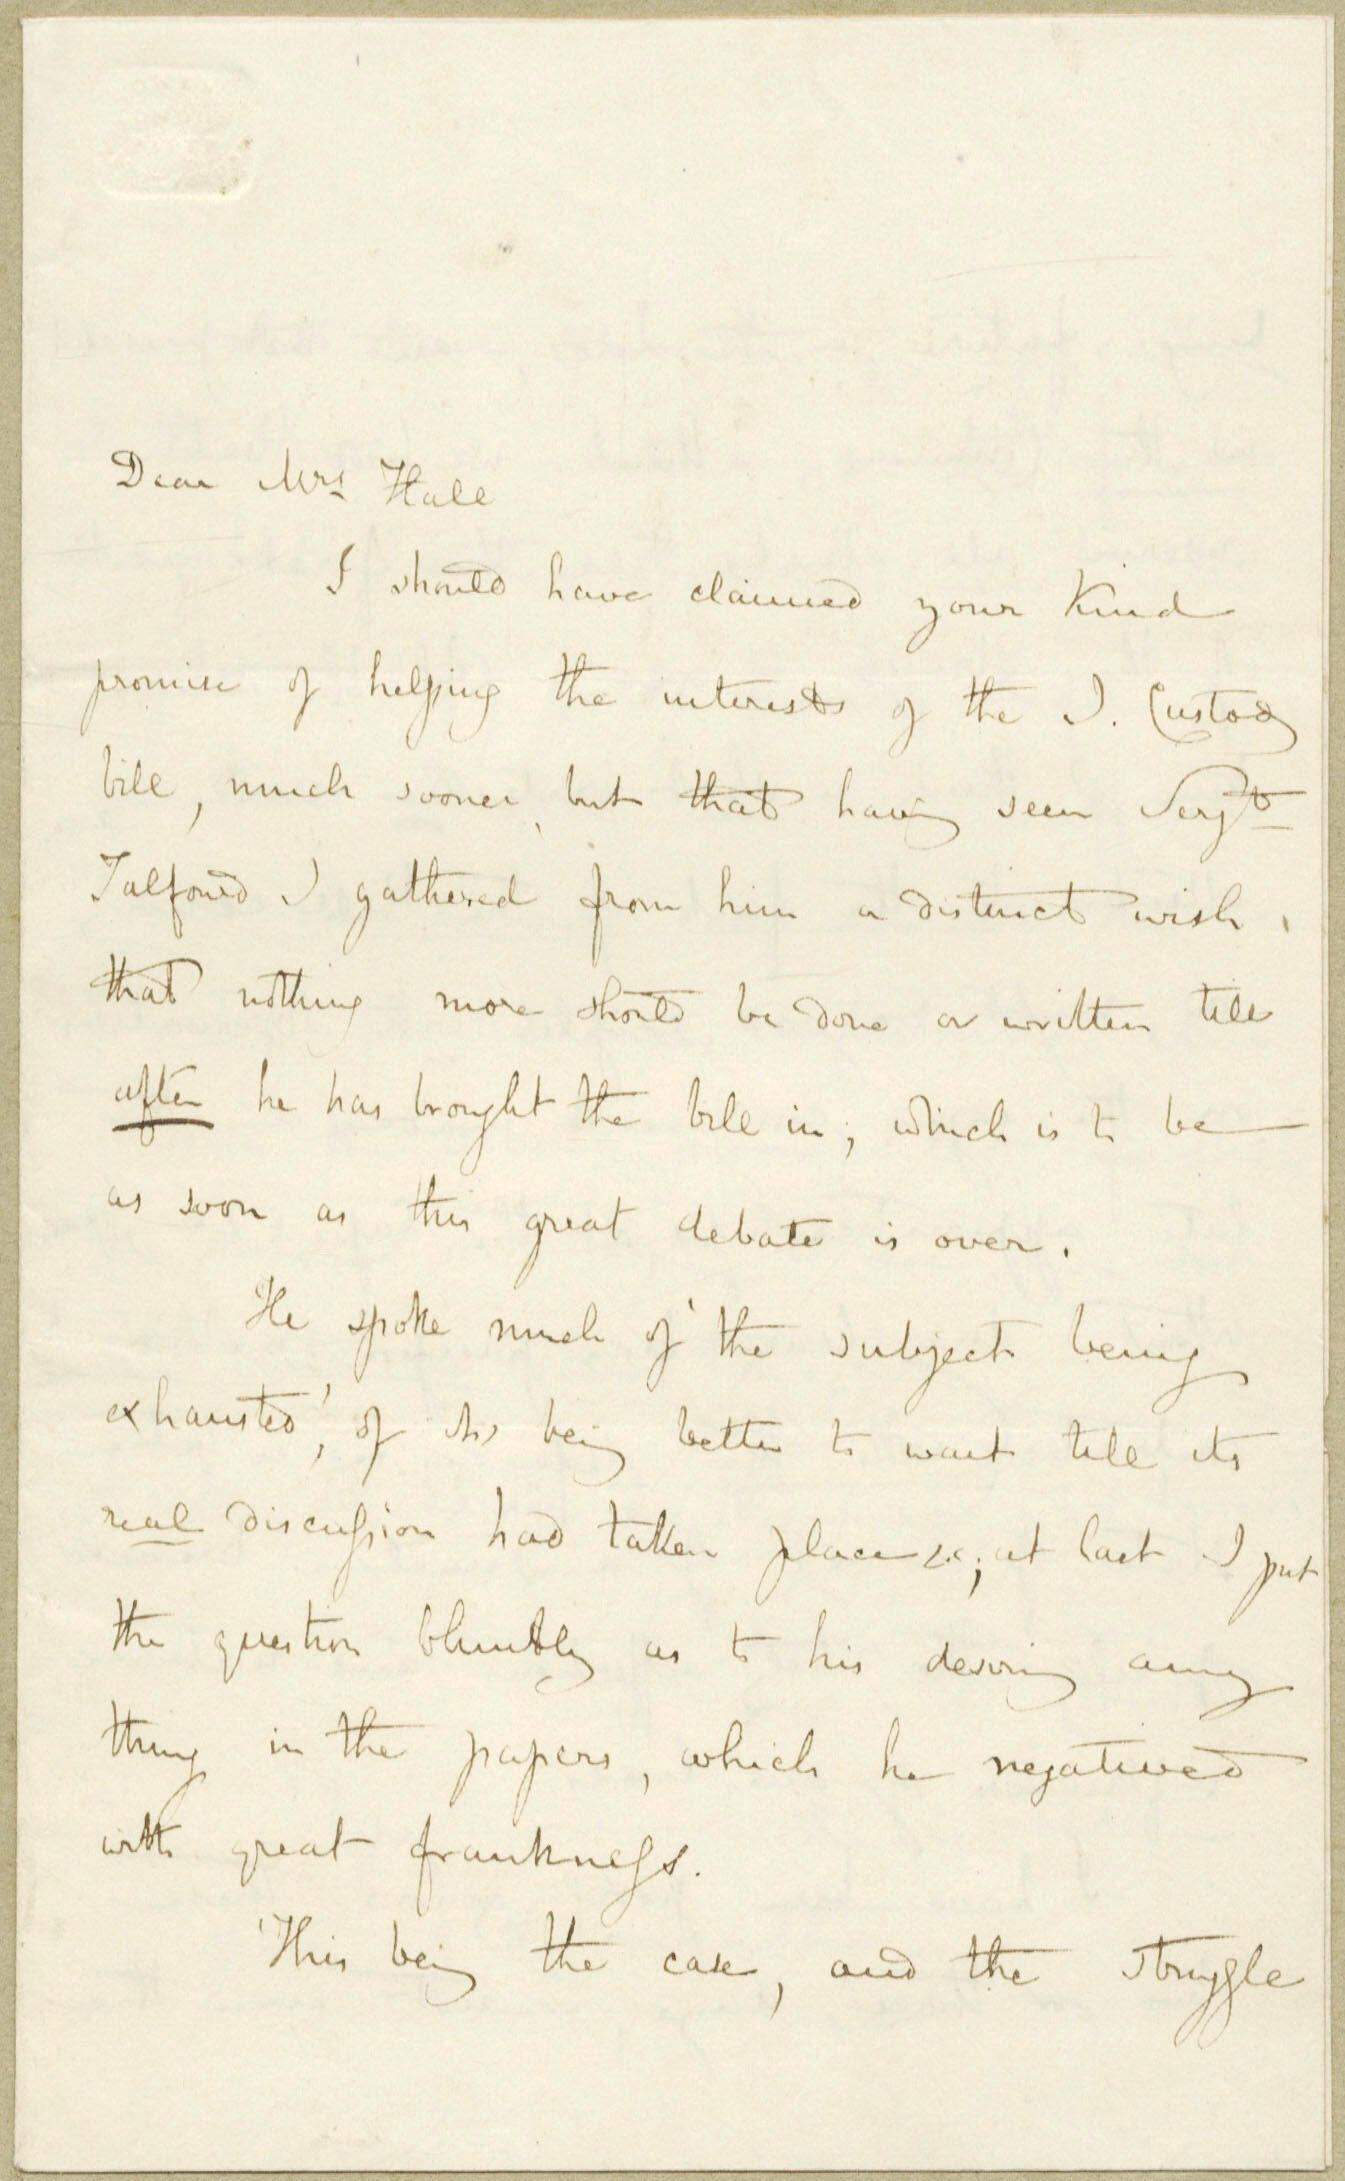 Dear Mrs Hall
I should have claimed your kind
promise of helping the interests of the I. Custody
bill, much sooner, but that having seen Serjt
Talfourd I gathered from him a distinct wish,
that nothing more should be done or written till
after he has brought the bill in; which is to be
as soon as this great debate is over.
He spoke much of 'the subject being
exhausted', of its being better to wait till its
real discussion had taken place &c; at last I put
the question bluntly as to his desiring any
thing in the papers, which he negatived
with great frankness.
This being the case, and the struggle